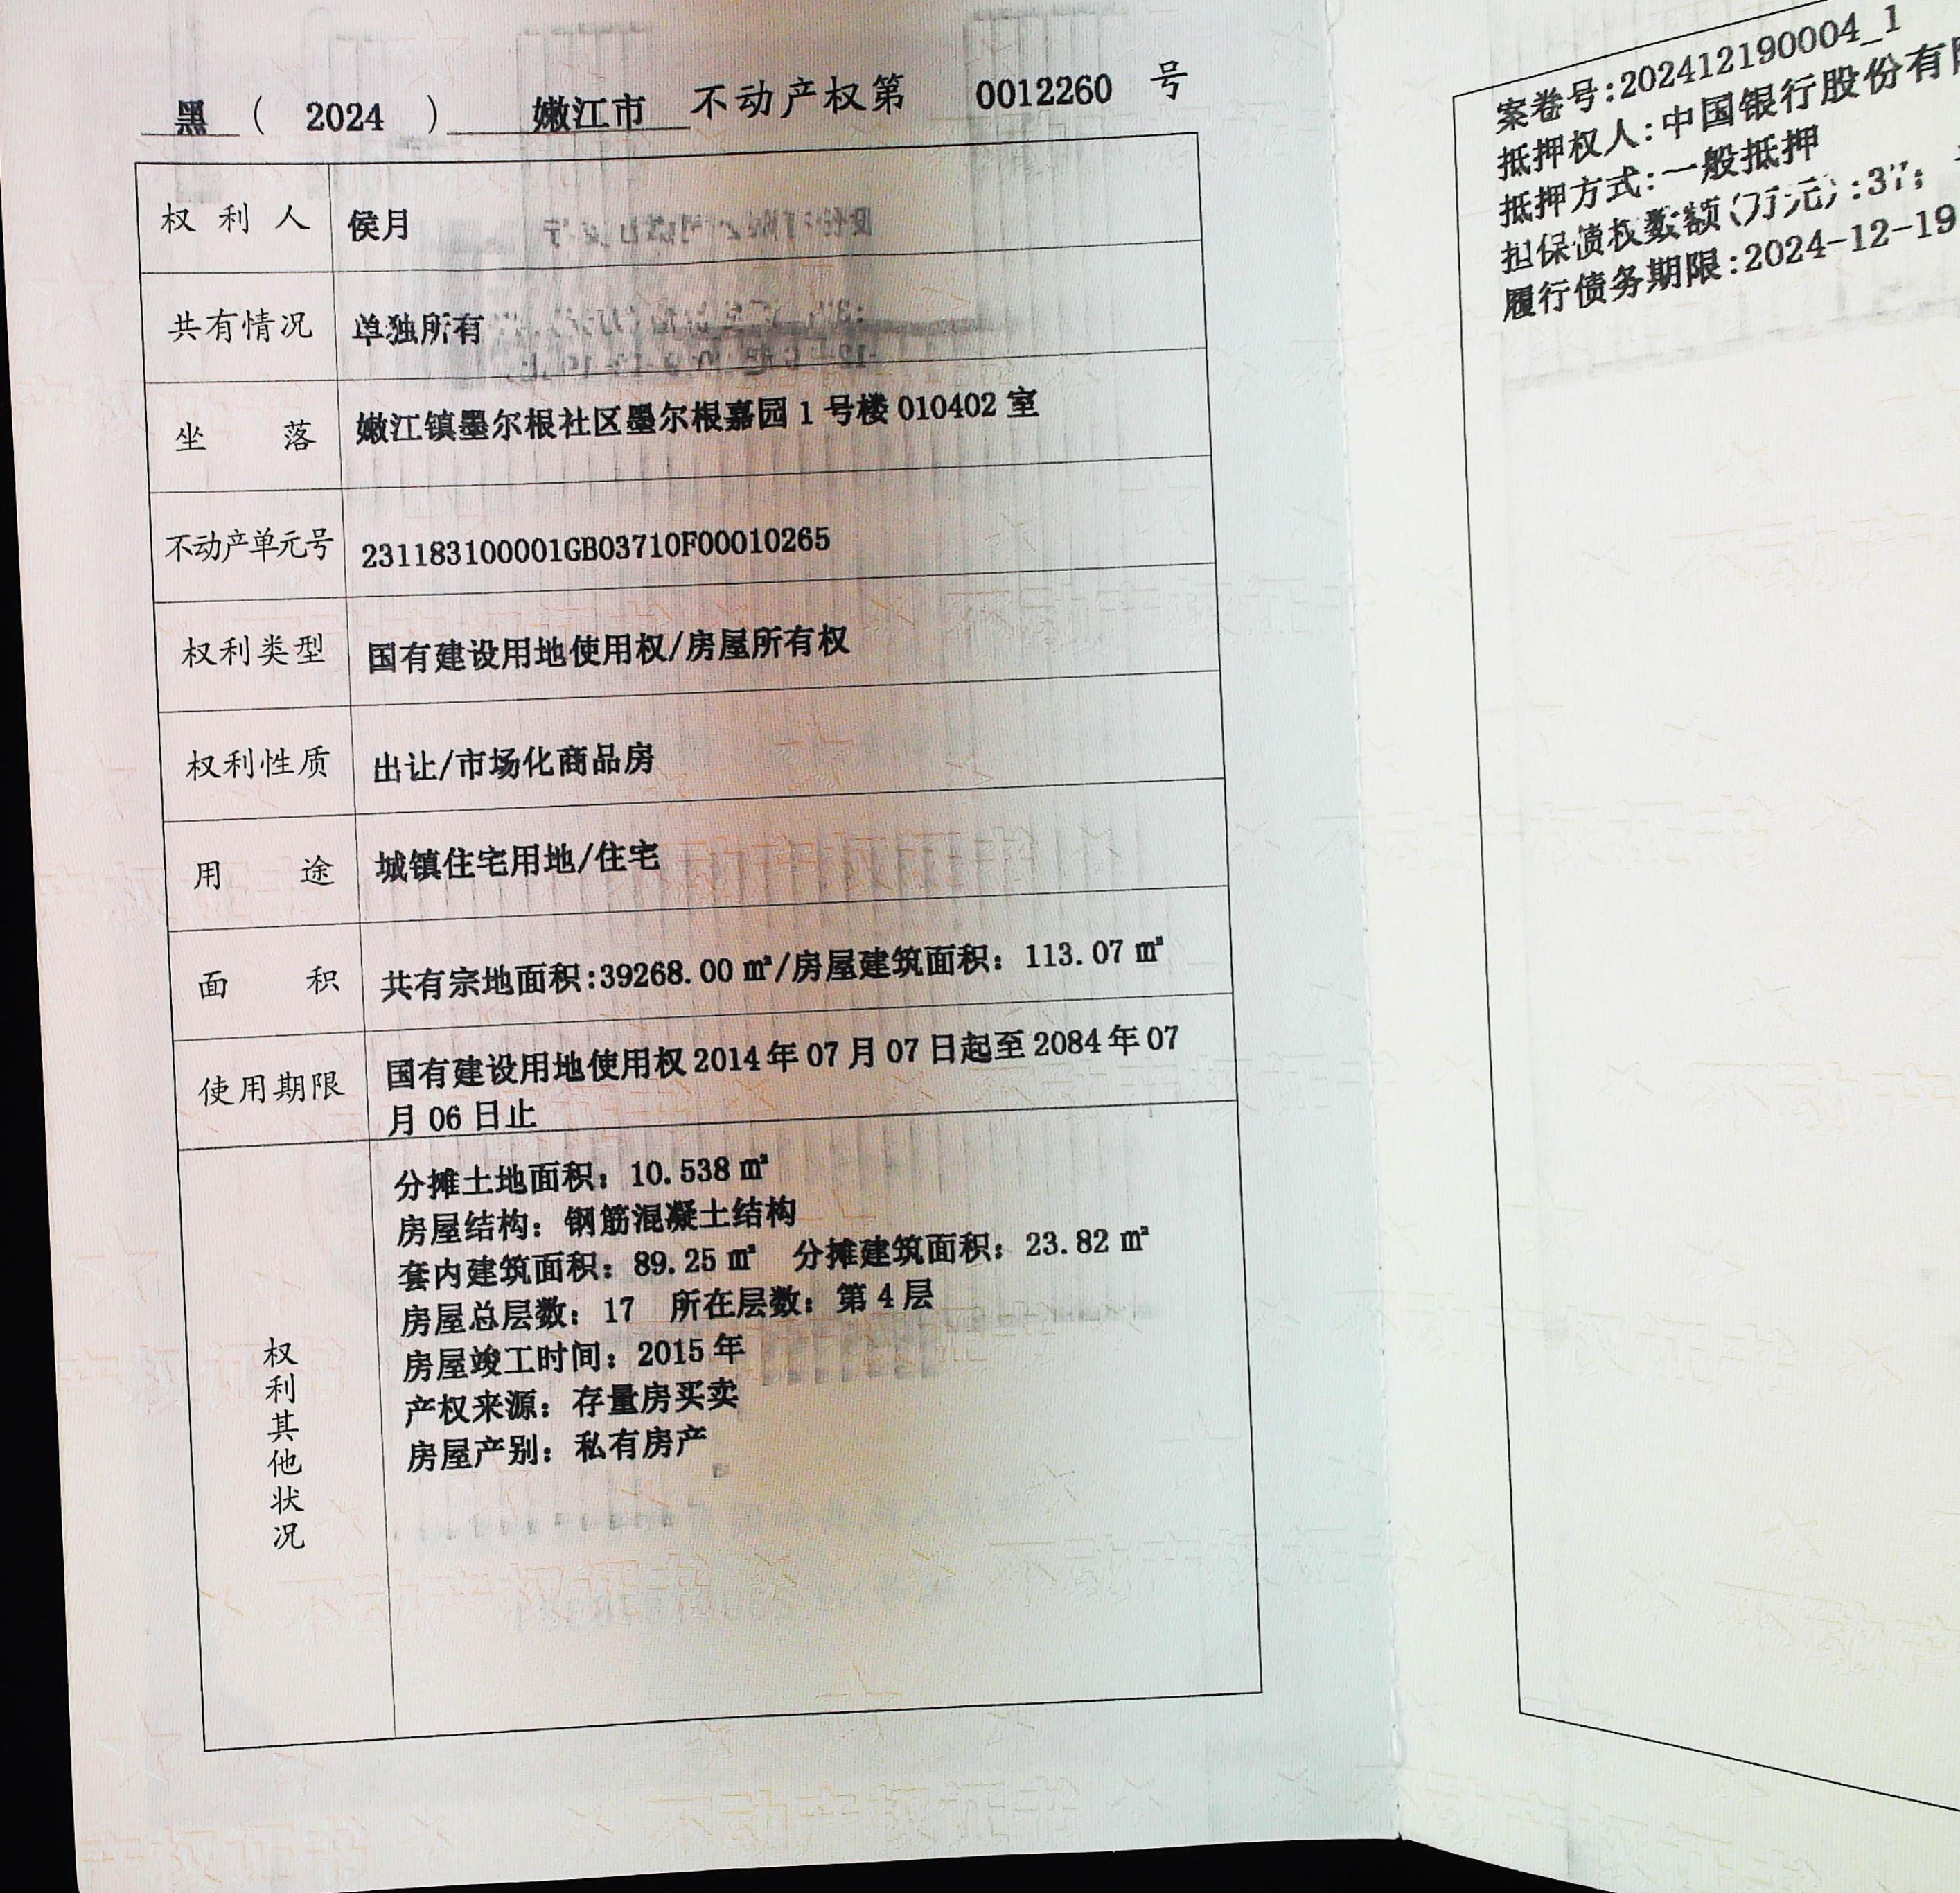 黑 ( 2024 ) 嫩江市 不动产权第 0012260 号
权利人 侯月
共有情况 单独所有
坐落 嫩江镇墨尔根社区墨尔根嘉园 1 号楼 010402 室
不动产单元号 231183100001GB03710F00010265
权利类型 国有建设用地使用权/房屋所有权
权利性质 出让/市场化商品房
用途 城镇住宅用地/住宅
面积 共有宗地面积:39268.00 ㎡/房屋建筑面积：113.07 ㎡
使用期限 国有建设用地使用权 2014 年 07 月 07 日起至 2084 年 07
月 06 日止
权利其他状况
分摊土地面积：10.538 ㎡
房屋结构：钢筋混凝土结构
套内建筑面积：89.25 ㎡ 分摊建筑面积：23.82 ㎡
房屋总层数：17 所在层数：第 4 层
房屋竣工时间：2015 年
产权来源：存量房买卖
房屋产别：私有房产
案卷号:202412190004_1
抵押权人:中国银行股份有
抵押方式:一般抵押
担保债权数额(万元):37;
履行债务期限:2024-12-19